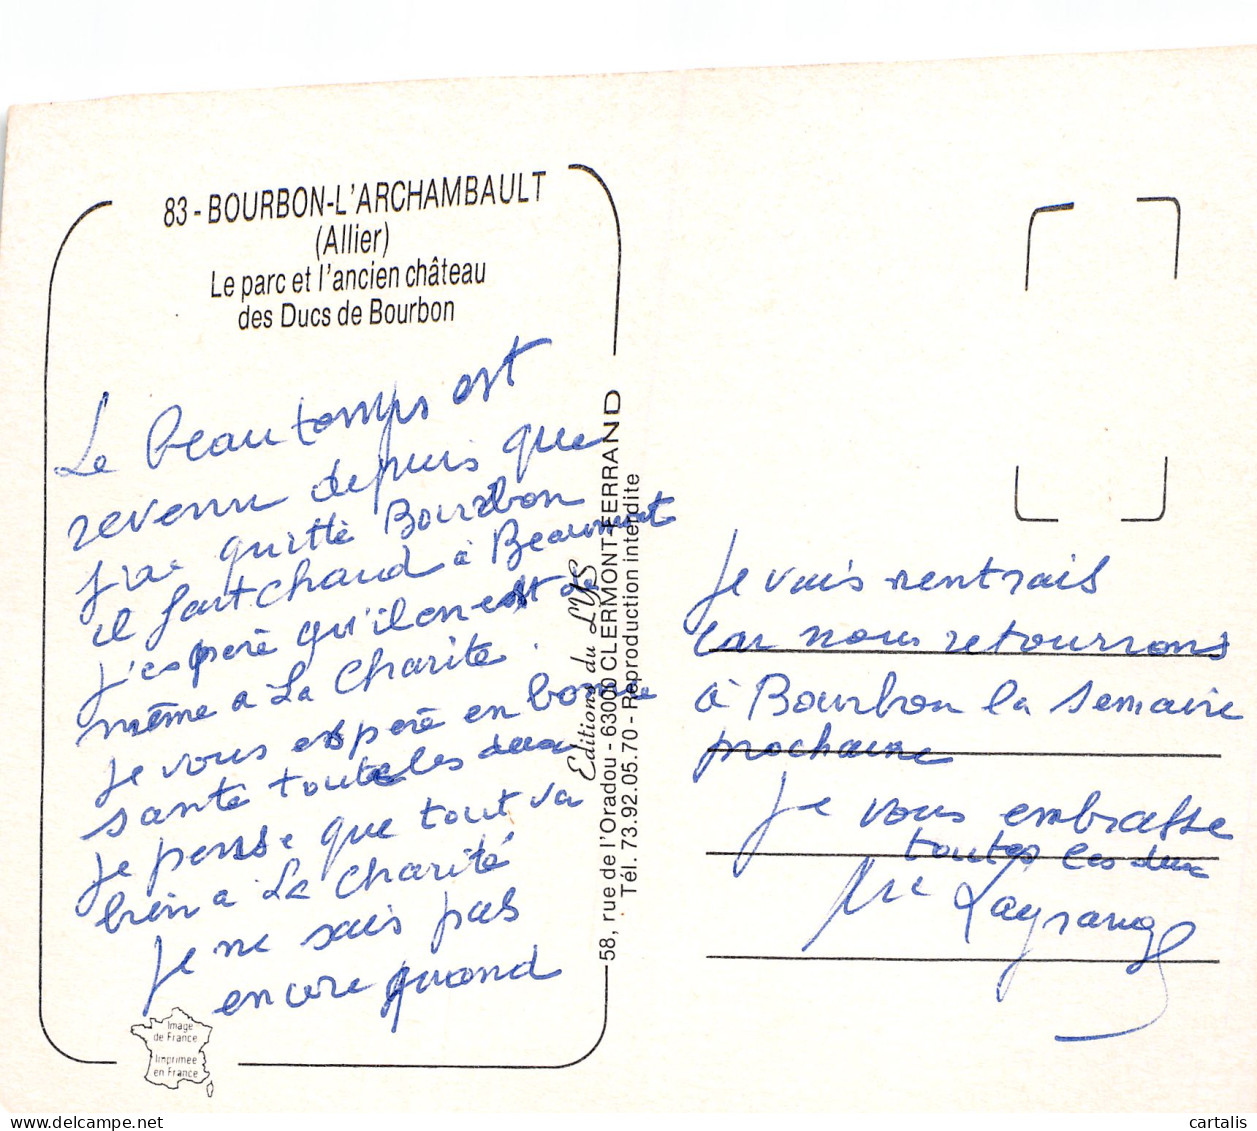 83 - BOURBON-L'ARCHAMBAULT
(Allier)
Le parc et l'ancien château
des Ducs de Bourbon
Le beau temps est
revenu depuis que
j'ai quitté Bourbon
il fait chaud à Beaumont
j'espère qu'il en est de
même a La Charite.
je vous espère en bonne
santé toute les deux
je pense que tout va
bien a La Charité
je ne sais pas
encore quand
Image
de France
Imprimée
en France
Editions du LYS
58, rue de l'Oradou - 63000 CLERMONT-FERRAND
Tél. 73.92.05.70 - Reproduction interdite
je vais rentrais
car nous retourrons
à Bourbon la semaine
prochaine
je vous embrasse
toutes les deux
Me Lagrange
cartalis